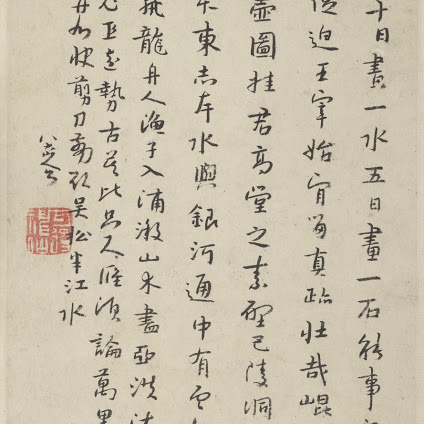 十日畫一水五日畫一石能事
促迫王宰始肯留真跡壯哉崐
壺圖挂君高堂之素壁巴陵洞
本東赤岸水與銀河通中有雲
飛龍舟人漁子入浦漵山木盡亞洪濤
尤工遠勢古莫比咫尺應須論萬里
并州快剪刀剪取吳松半江水
八大山人